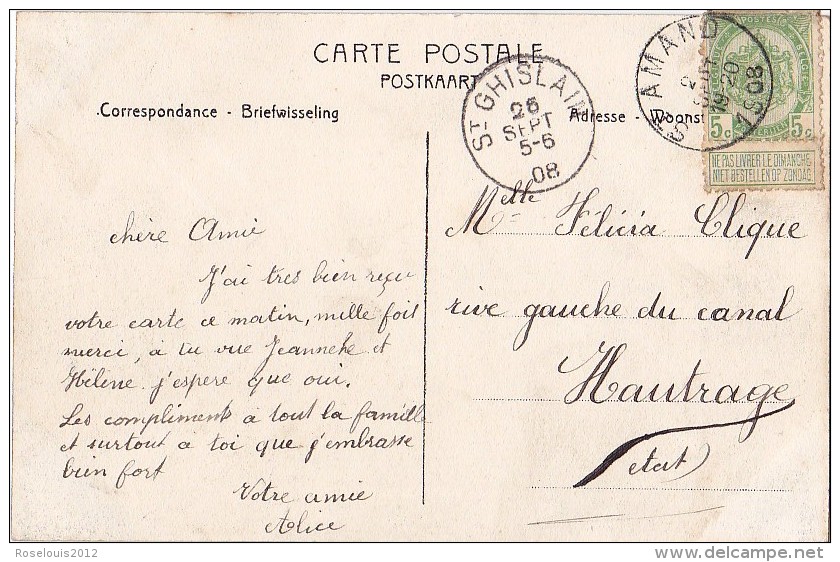 CARTE POSTALE
POSTKAART
Correspondance - Briefwisseling
Adresse - Woonst
ST GHISLAIN
26
SEPT
5-6
08
ST AMAND
SEPT
19-20
1908
POSTES
BELGIQUE
5c 5c
NE PAS LIVRER LE DIMANCHE
NIET BESTELLEN OP ZONDAG
chère Amie
J'ai tres bien reçu
votre carte ce matin, mille fois
merci, à tu vue Jeannette et
Hélène j'espere que oui.
Les compliments à tout la famille
et surtout à toi que j'embrasse
bien fort
Votre amie
Alice
Melle Félicia Clique
rive gauche du canal
Hautrage
etat)
Roselouis2012
delcampe.net